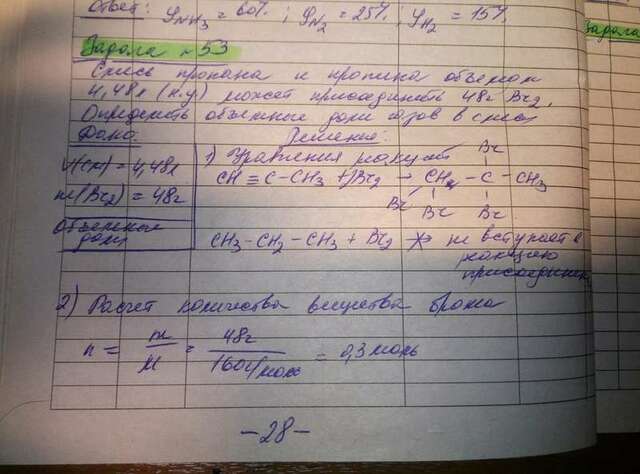 Ответ: φNH3 = 60%; φN2 = 25%; φH2 = 15%
Задача №53
Задача
Смесь пропана и пропина объемом
4,48л (н.у) может присоединить 48г Br2.
Определить объемные доли газов в смеси
Дано: Решение:
V(см) = 4,48л
m(Br2) = 48г
Объемные
доли
1) Уравнения реакций
Br
CH≡C-CH3 + Br2 → CH - C - CH3
Br Br Br
CH3-CH2-CH3 + Br2 → не вступает в
реакцию
присоединен
2) Расчет количества вещества брома
n = m/M = 48г/160г/моль = 0,3 моль
-28-